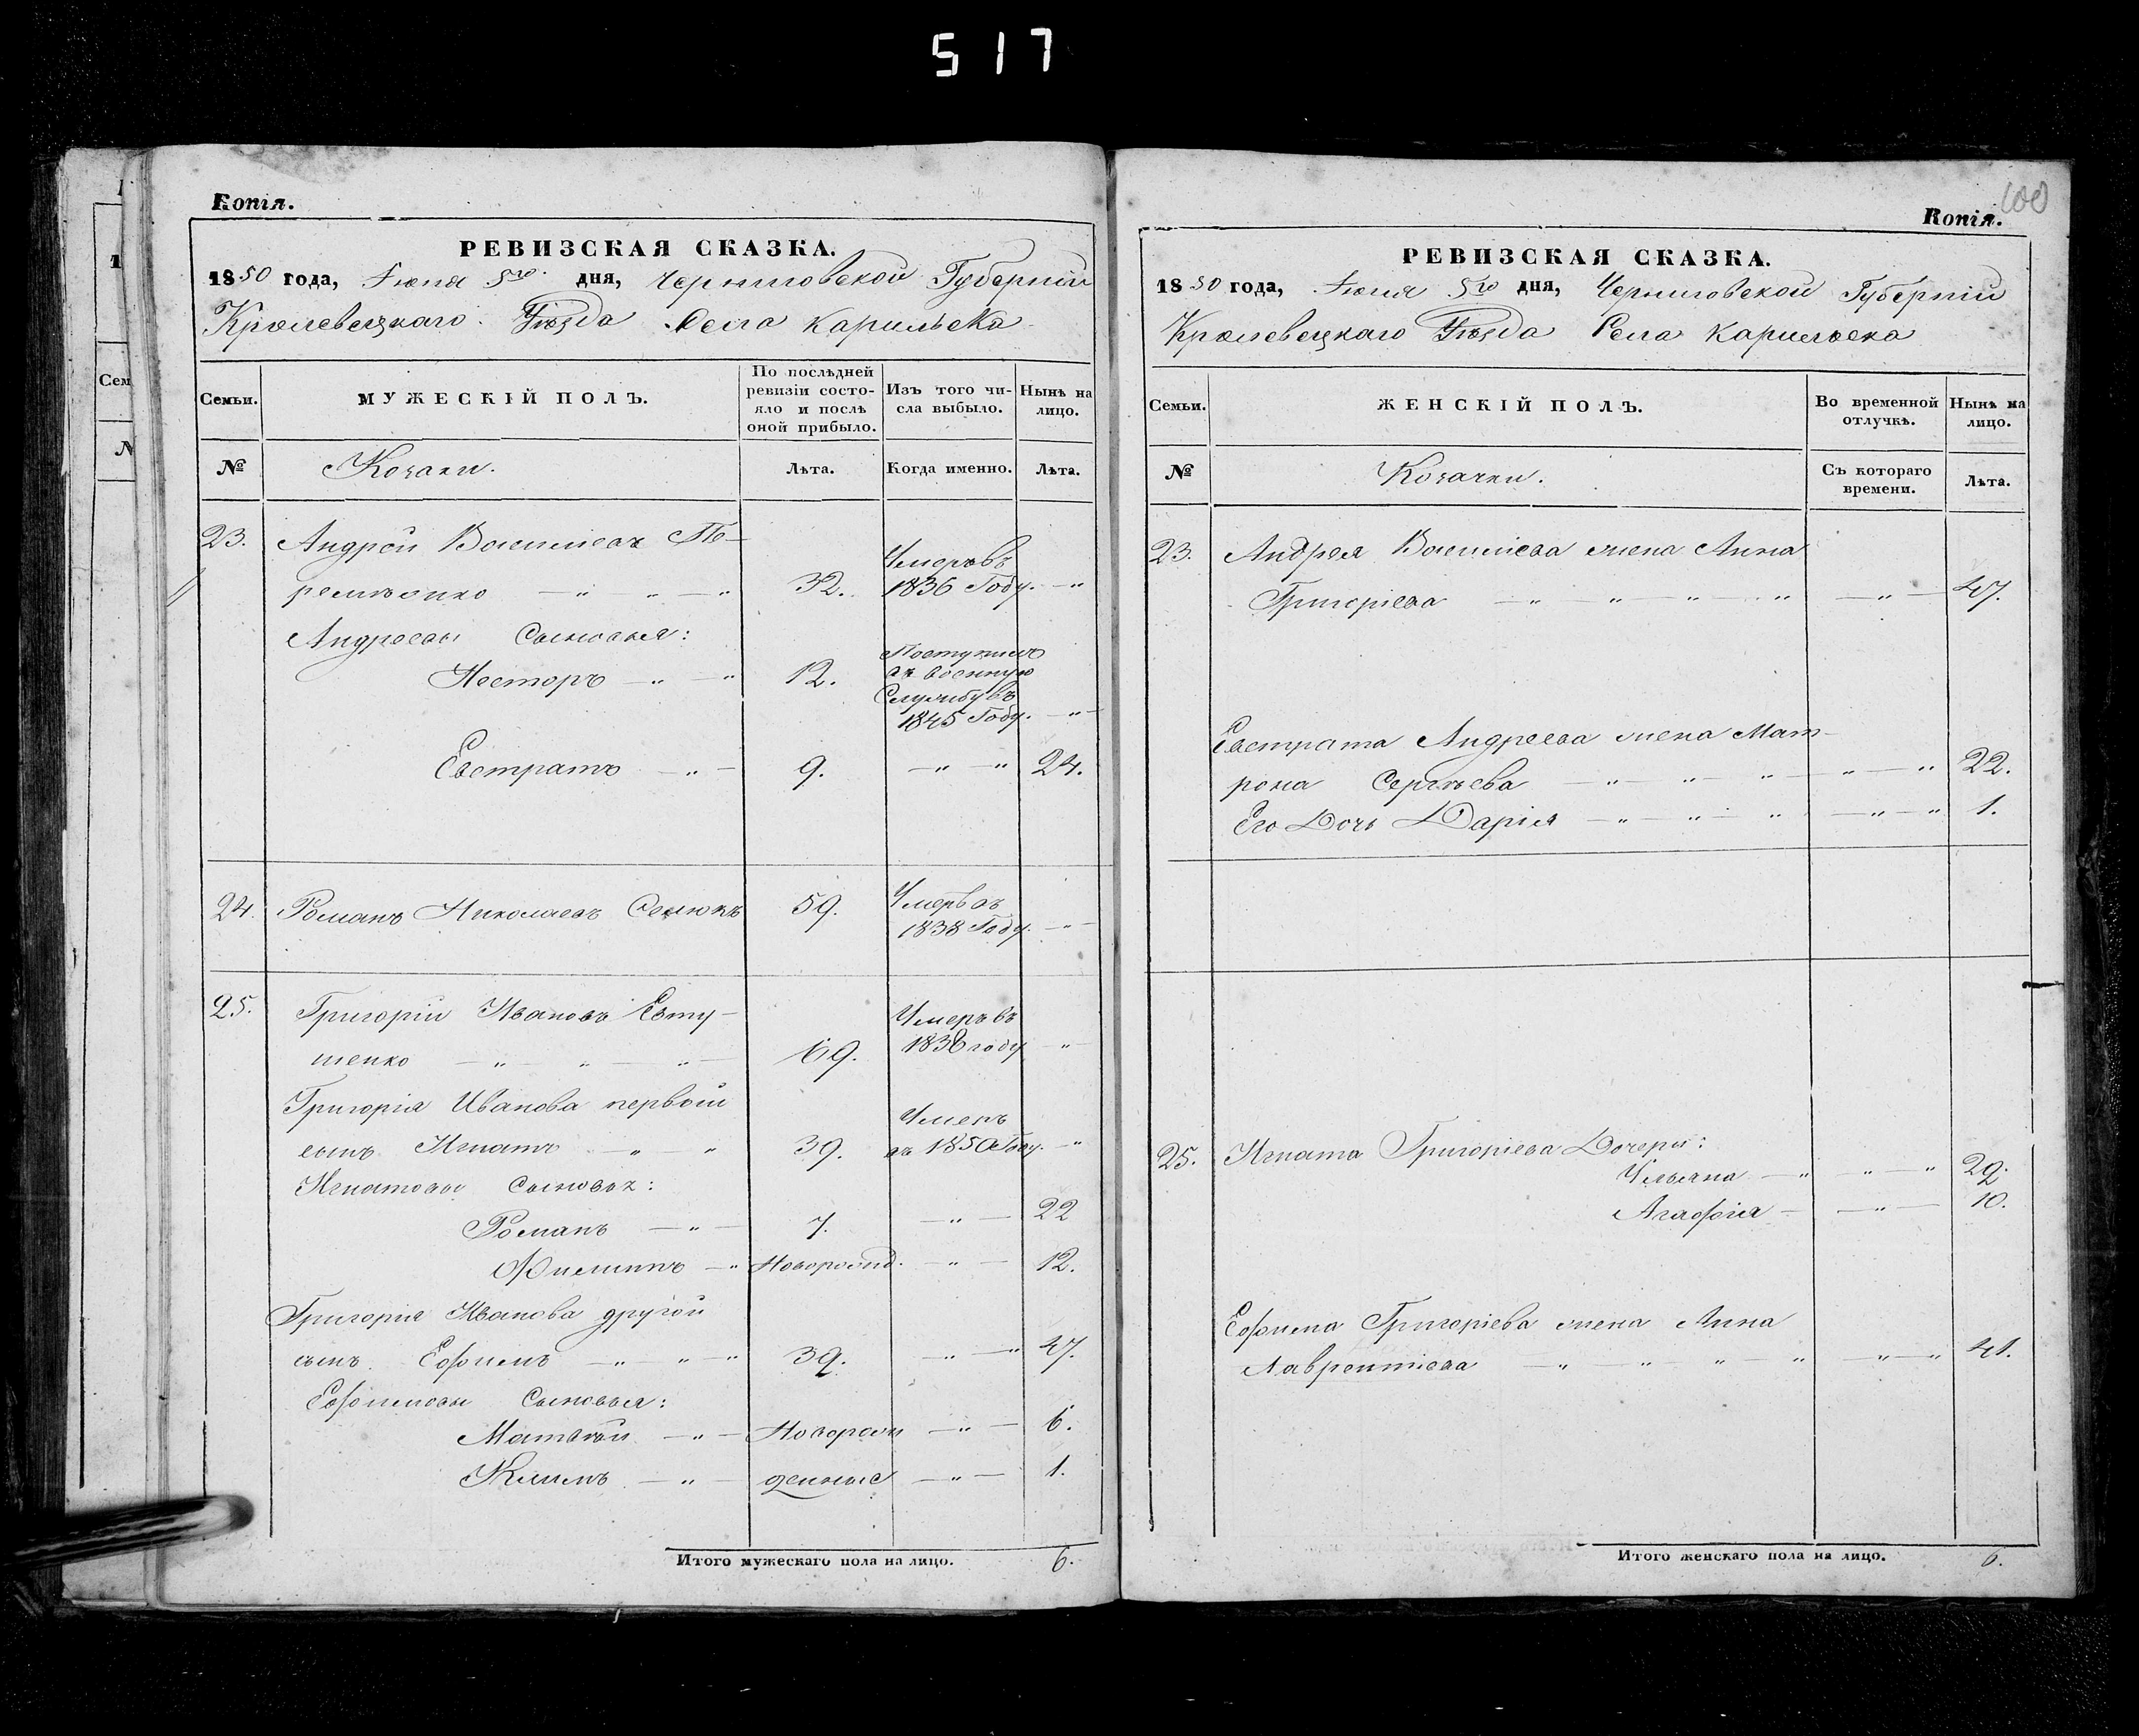 517
Копія.
РЕВИЗСКАЯ СКАЗКА.
1850 года, Іюня 5го дня, Черниговской Губерніи
Кролевецкаго Уѣзда Села Карильска
Семьи.
МУЖЕСКІЙ ПОЛЪ.
По послѣдней ревизіи состо-
яло и послѣ
оной прибыло.
Изъ того чи-
сла выбыло.
Нынѣ на
лицо.
№
Козаки.
Лѣта.
Когда именно.
Лѣта.
23. Андрей Васильевъ Пе-
32. Умеръ въ
1836 Году.
Андреевы Сыновья:
Несторъ 12. Поступилъ
въ военную
Службу въ
1845 Году.
Евстратъ 9. 24.
24. Романъ Николаевъ 59. Умеръ въ
1838 Году.
25. Григорій Ивановъ Евту-
шенко 69. Умеръ въ
1838 году
Григорія Иванова первый
сынъ Игнатъ 39. Умеръ
въ 1850 Году.
Игнатовы Сыновья:
Романъ 7. 22
Филипъ Новорожд. 12.
Григорія Иванова другой
сынъ Ефимъ 39. 47.
Ефимовы Сыновья:
Матвѣй Новорож 6.
Климъ денные 1.
Итого мужескаго пола на лицо. 6.
100
Копія.
РЕВИЗСКАЯ СКАЗКА.
1850 года, Іюня 5го дня, Черниговской Губерніи
Кролевецкаго Уѣзда Села Карильска
Семьи.
ЖЕНСКІЙ ПОЛЪ.
Во временной
отлучкѣ.
Нынѣ на
лицо.
№
Козачки.
Съ котораго
времени.
Лѣта.
23. Андрея Васильева жена Анна
Григоріева 47.
Евстрата Андреева жена Мат-
рона Сергѣева 22.
Его Дочь Дарія 1.
25. Игната Григоріева Дочери:
Ульяна 29.
Агафія 10.
Ефима Григоріева жена Анна
Лаврентіева 41.
Итого женскаго пола на лицо. 6.